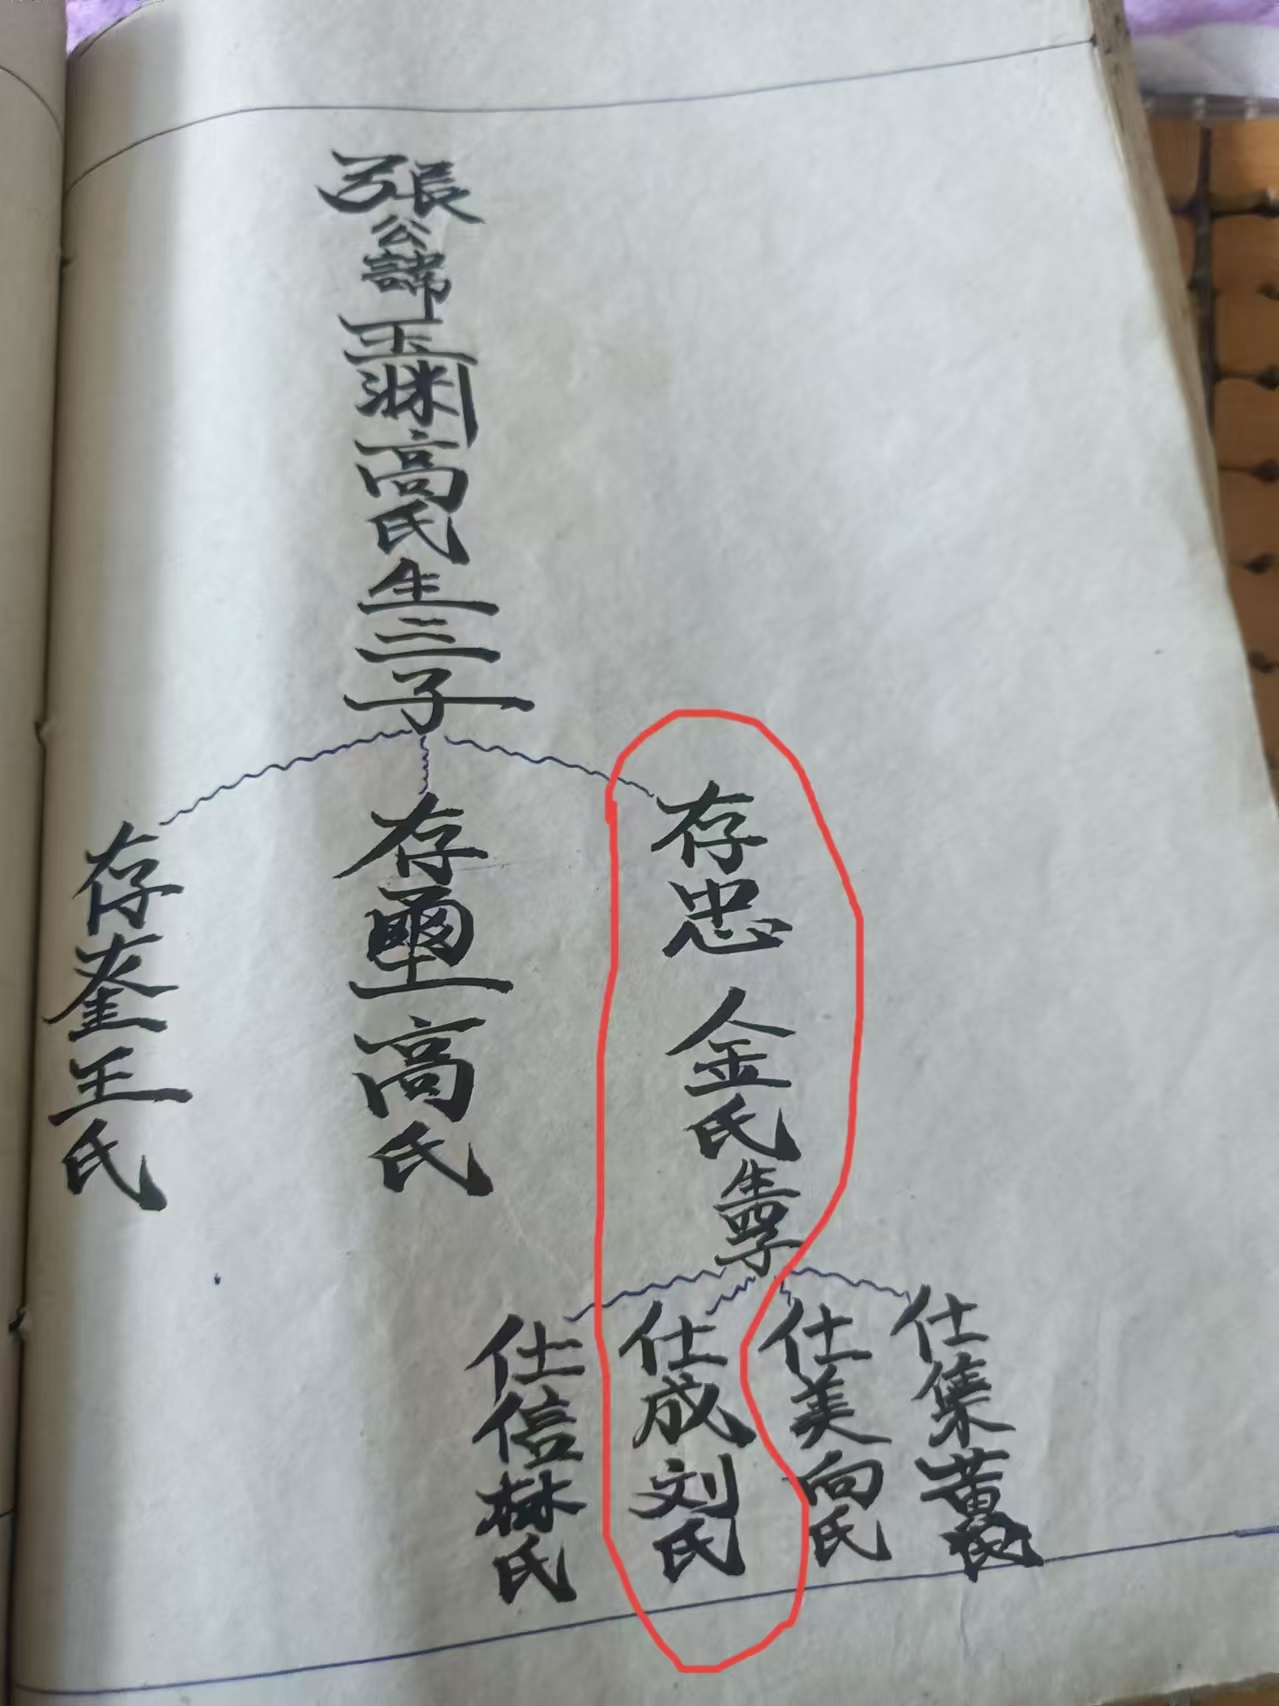 張公諱玉渊高氏生三子
存忠 金氏生四子
存壐高氏
存奎王氏
仕集黄氏
仕美向氏
仕成刘氏
仕信林氏